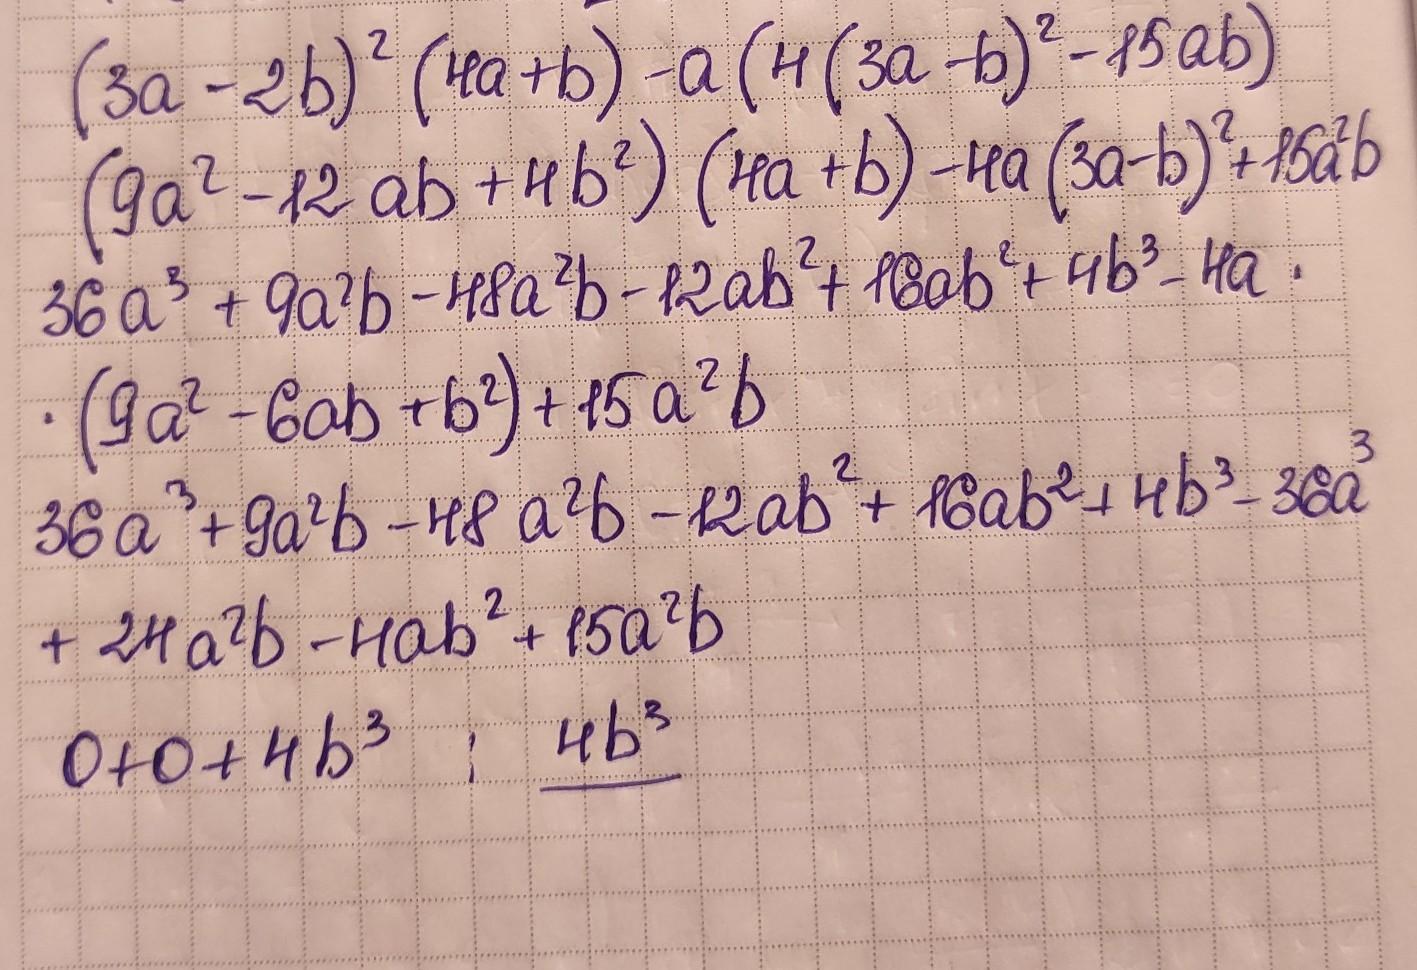 (3a - 2b)² (4a + b) - a (4 (3a - b)² - 15ab)
(9a² - 12ab + 4b²) (4a + b) - 4a (3a - b)² + 15a²b
36a³ + 9a²b - 48a²b - 12ab² + 16ab² + 4b³ - 4a ·
· (9a² - 6ab + b²) + 15a²b
36a³ + 9a²b - 48a²b - 12ab² + 16ab² + 4b³ - 36a³
+ 24a²b - 4ab² + 15a²b
0 + 0 + 4b³ ; 4b³